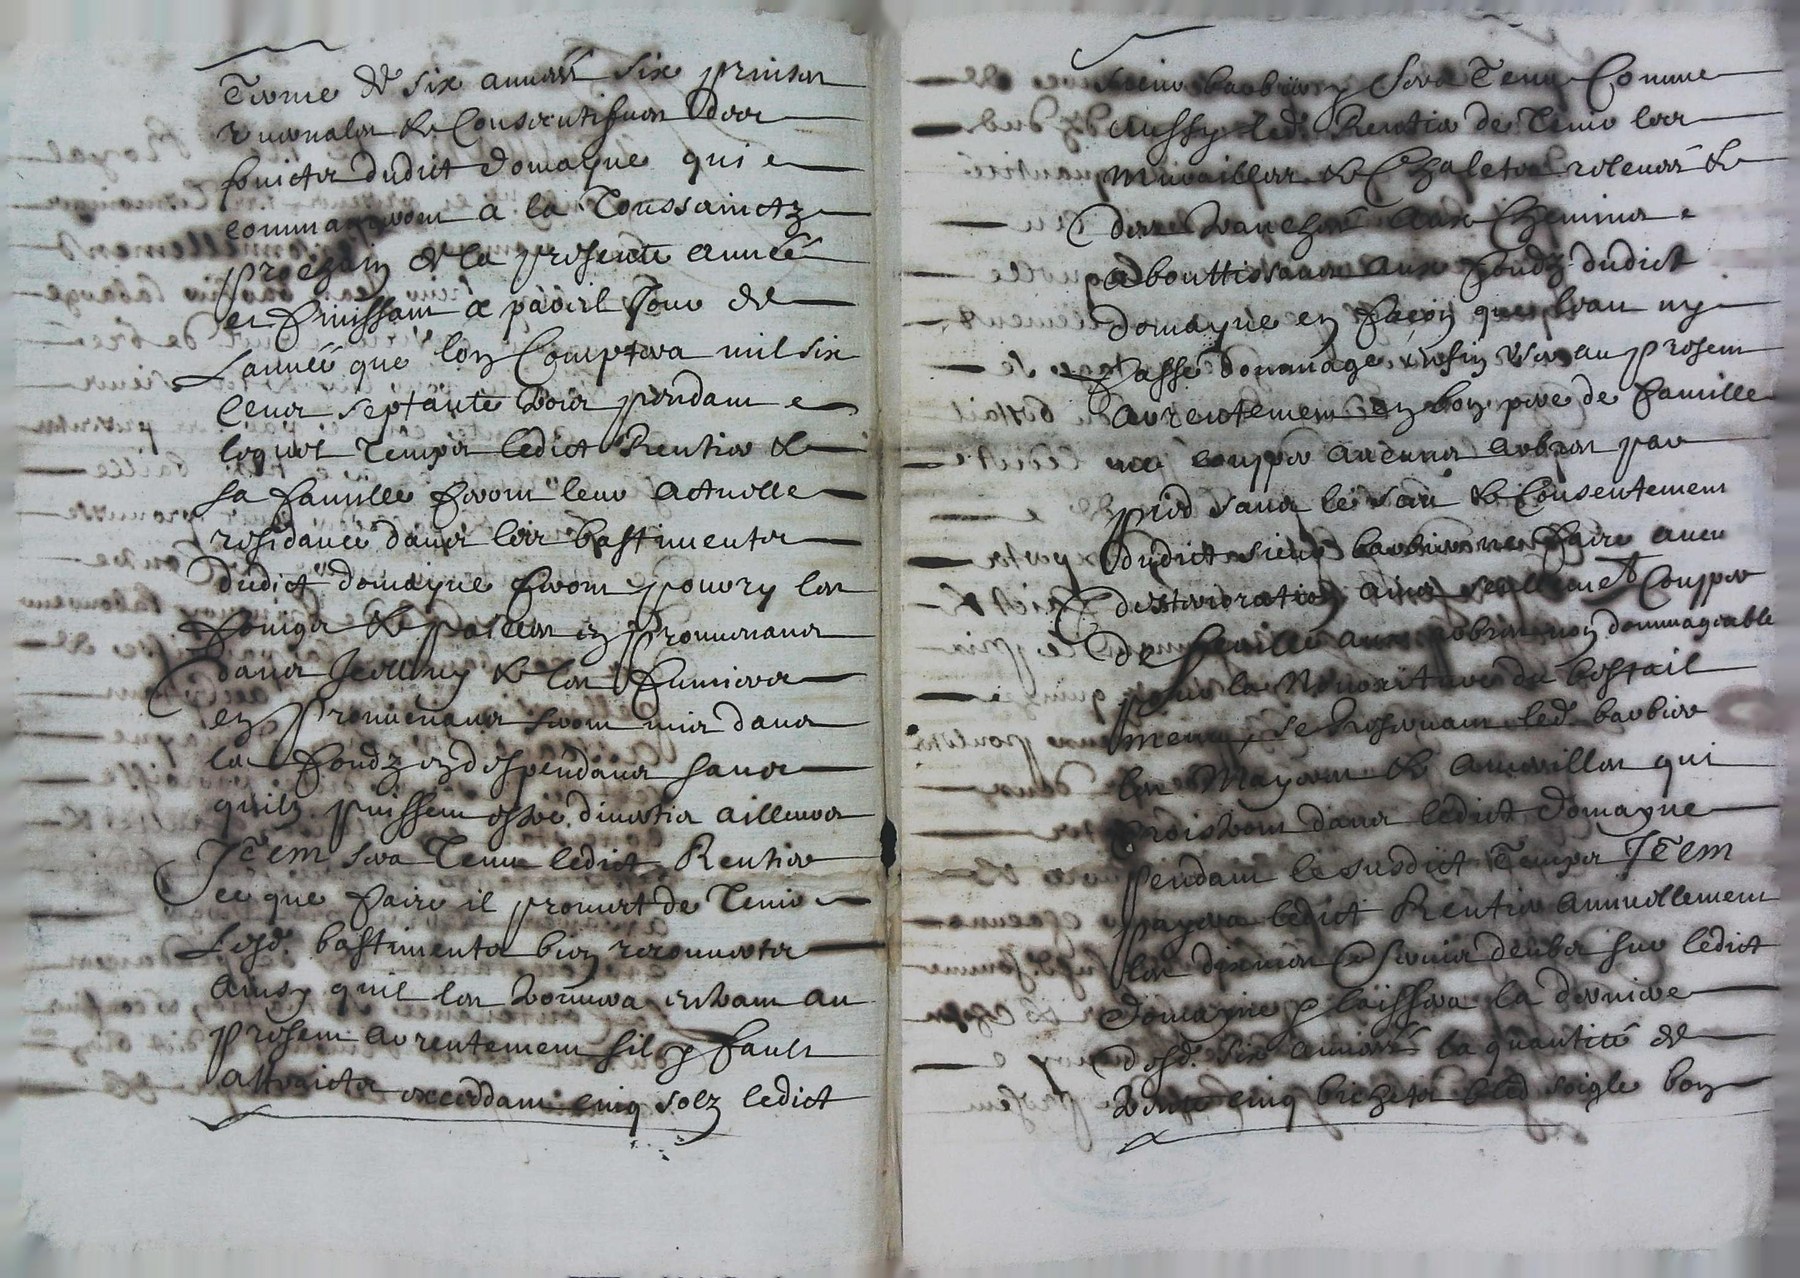 Terme de six années six prinses
revenales & Consecutifues des
fruictz dudict domayne qui
commanceront a la Toussainctz
prochain de la presente année
et finissant a pareil Jour de
Lannée que lon Comptera mil six
Cens septante trois pendant
lequel Temps ledict Rentier &
sa famille feront leur actuelle
residance dans les bastimentz
dudict domayne feront pourry les
foings & pailles en provenans
dans Jcelluy & les fumiers
en provenans seront mis dans
les fondz en despendans sans
quilz puissent estre divertis ailleurs
Jtem sera Tenu ledict Rentier
ce que faire il promet de Tenir
Lesd. bastimentz bien recouverts
ainsy quil les trouvera entrant au
present arrentement sil y fault
attraictz exceddant cinq solz ledict
sieur barbier y sera Tenu Comme
aussy led. Rentier de Tenir les
murailles & Chaletz relevés &
des tranchés aux Chemins
aboutissans aux fondz dudict
domayne en façon que leau ny
fasse dommage enfin user au present
arrentement en bon pere de famille
ne coupper aucuns arbres par
pied sans le sceu & Consentement
dudict sieur barbier ne faire aucu
desterioration ains seullement Coupper
de feuille aux arbres non dommageable
pour la Nourriture du bestail
menu, se reservant led. barbier
les Mayeres & amarilles qui
croistront dans ledict domayne
pendant le susdict Temps Jtem
payera ledict Rentier annuellement
les dixmes & servis deubz sur ledict
domayne y laissera la derniere
desd. six années la quantité de
trente cinq bichetz bled soigle bon